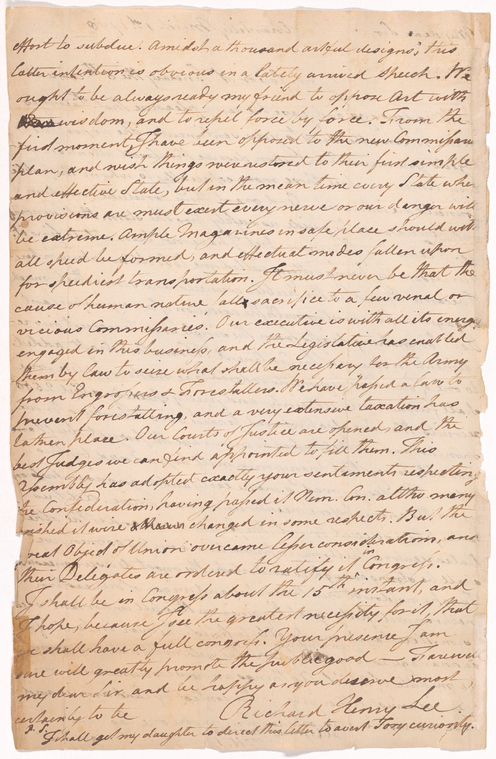 effort to subdue. Amidst a thousand artful designs, this
latter intention is obvious in a lately arrived speech. We
ought to be always ready my friend to oppose Art with
wisdom, and to repel force by force. From the
first moment, I have been opposed to the new Commissary
plan, and wish things were restored to their first simple
and effective State, but in the mean time every State where
provisions are must exert every nerve or our danger will
be extreme. Ample Magazines in safe place should with
all speed be formed, and effectual modes fallen upon
for speediest transportation. It must never be that the
cause of human nature fall a sacrifice to a few venal or
vicious Commissaries. Our executive is with all its energy
engaged in this business, and the Legislative has enabled
them by Law to seize what shall be necessary for the Army
from Engrossers & Forestallers. We have passed a Law to
prevent forestalling, and a very extensive taxation has
taken place. Our Courts of Justice are opened and the
best Judges we can find appointed to fill them. This
Assembly has adopted exactly your sentiments respecting
the Confederation, having passed it Nem. Con. altho many
wished it were changed in some respects. But the
great Object of Union overcame lesser considerations, and
their Delegates are ordered to ratify it in Congress.
I shall be in Congress about the 15th instant, and
I hope, because I see the greatest necessity for it, that
we shall have a full congress. Your presence I am
sure will greatly promote the public good — Farewell
my dear Sir, and be happy as you deserve most
certainly to be Richard Henry Lee.
P.S. I shall get my daughter to direct this letter to avert Tory curiosity.